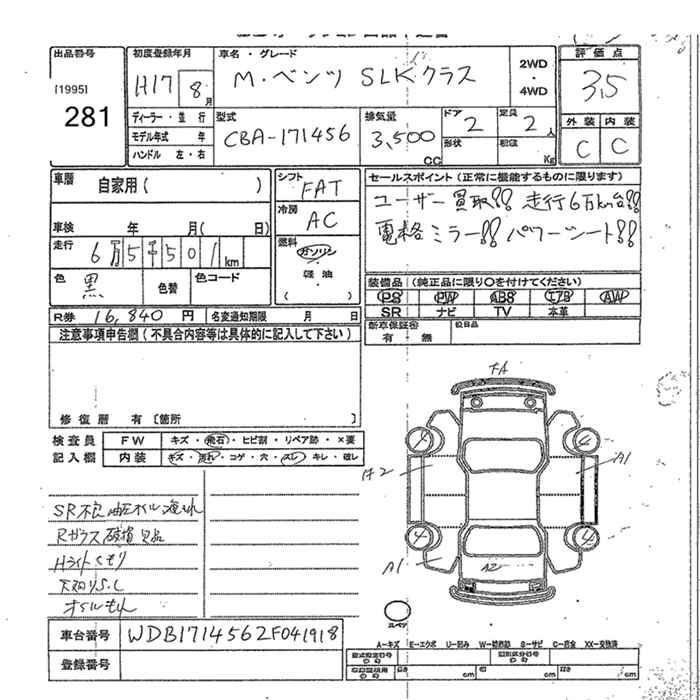 出品番号
[1995]
281
初度登録年月
H17 8月
車名・グレード
M・ベンツ SLKクラス
2WD
・
4WD
評価点
3.5
外装 内装
C C
ディーラー・並行
モデル年式 年
ハンドル 左・右
型式
CBA-171456
排気量
3,500
CC
ドア
2
形状
定員
2人
積載
Kg
車歴
自家用( )
車検 年 月( 日)
走行
6万5千501km
色
黒
色替
色コード
シフト
FAT
冷房
AC
燃料
ガソリン
・
軽油
( )
セールスポイント(正常に機能するものに限ります)
ユーザー買取!! 走行6万km台!!
電格ミラー!! パワーシート!!
装備品(純正品に限り○を付けてください)
PS PW ABS エアB AW
SR ナビ TV 本革
新車保証書
有・無
欠品
R券 16,840円
名変通知期限 月 日
注意事項申告欄(不具合内容等は具体的に記入して下さい)
修復歴 有[箇所 ]
検査員
記入欄
FW
キズ・飛石・ヒビ割・リペア跡・×要
内装
キズ・汚れ・コゲ・穴・スレ・キレ・破レ
SR不良
Rガラス破損
Hライトくもり
オイルもれ
FA
A2
A1
A1
A2
スペア
A-キズ E-エクボ U-凹み W-補修跡 S-サビ C-腐食 XX-交換済
車台番号
WDB1714562F041918
登録番号
型式指定番号
類別区分番号
長さ cm
幅 cm
高さ cm